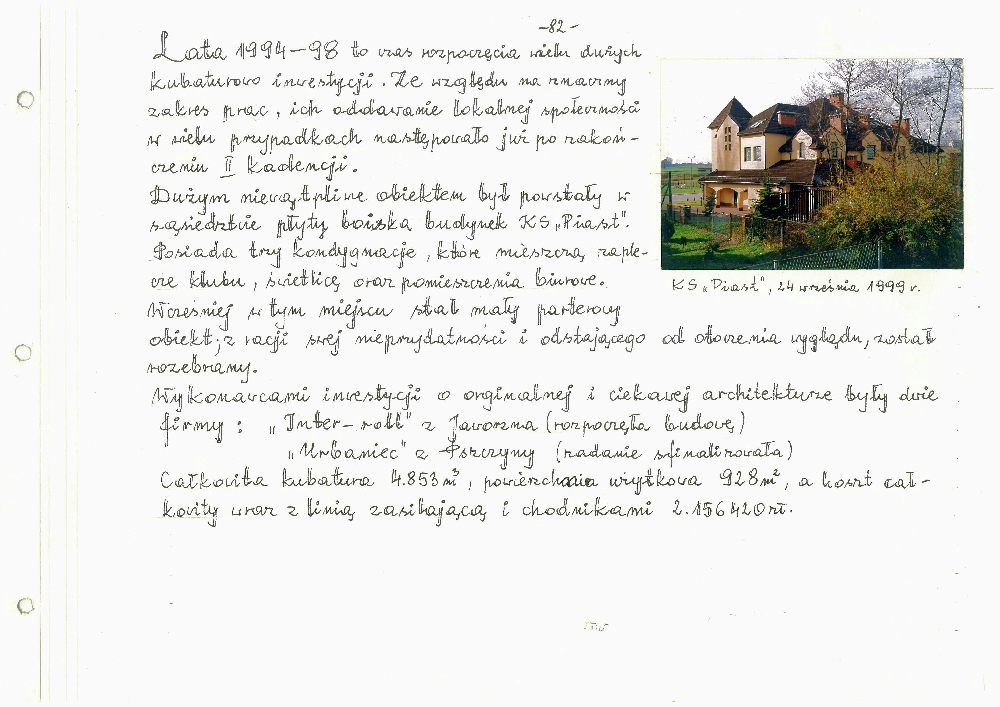 -82-
Lata 1994-98 to czas rozpoczęcia wielu dużych
kubaturowo inwestycji. Ze względu na znaczny
zakres prac, ich oddawanie lokalnej społeczności
w wielu przypadkach następowało już po zakoń-
czeniu II kadencji.
Dużym niewątpliwie obiektem był powstały w
sąsiedztwie płyty boiska budynek KS „Piast".
Posiada trzy kondygnacje, które mieszczą zaple-
cze klubu, świetlicę oraz pomieszczenia biurowe.
KS „Piast", 24 września 1999 r.
Wcześniej w tym miejscu stał mały parterowy
obiekt; z racji swej nieprzydatności i odstającego od otoczenia wyglądu, został
rozebrany.
Wykonawcami inwestycji o orginalnej i ciekawej architekturze były dwie
firmy: „Inter-roll" z Jaworzna (rozpoczęła budowę)
„Urbaniec" z Pszczyny (zadanie sfinalizowała)
Całkowita kubatura 4.853 m³, powierzchnia użytkowa 928 m², a koszt cał-
kowity wraz z linią zasilającą i chodnikami 2.156420 zł.